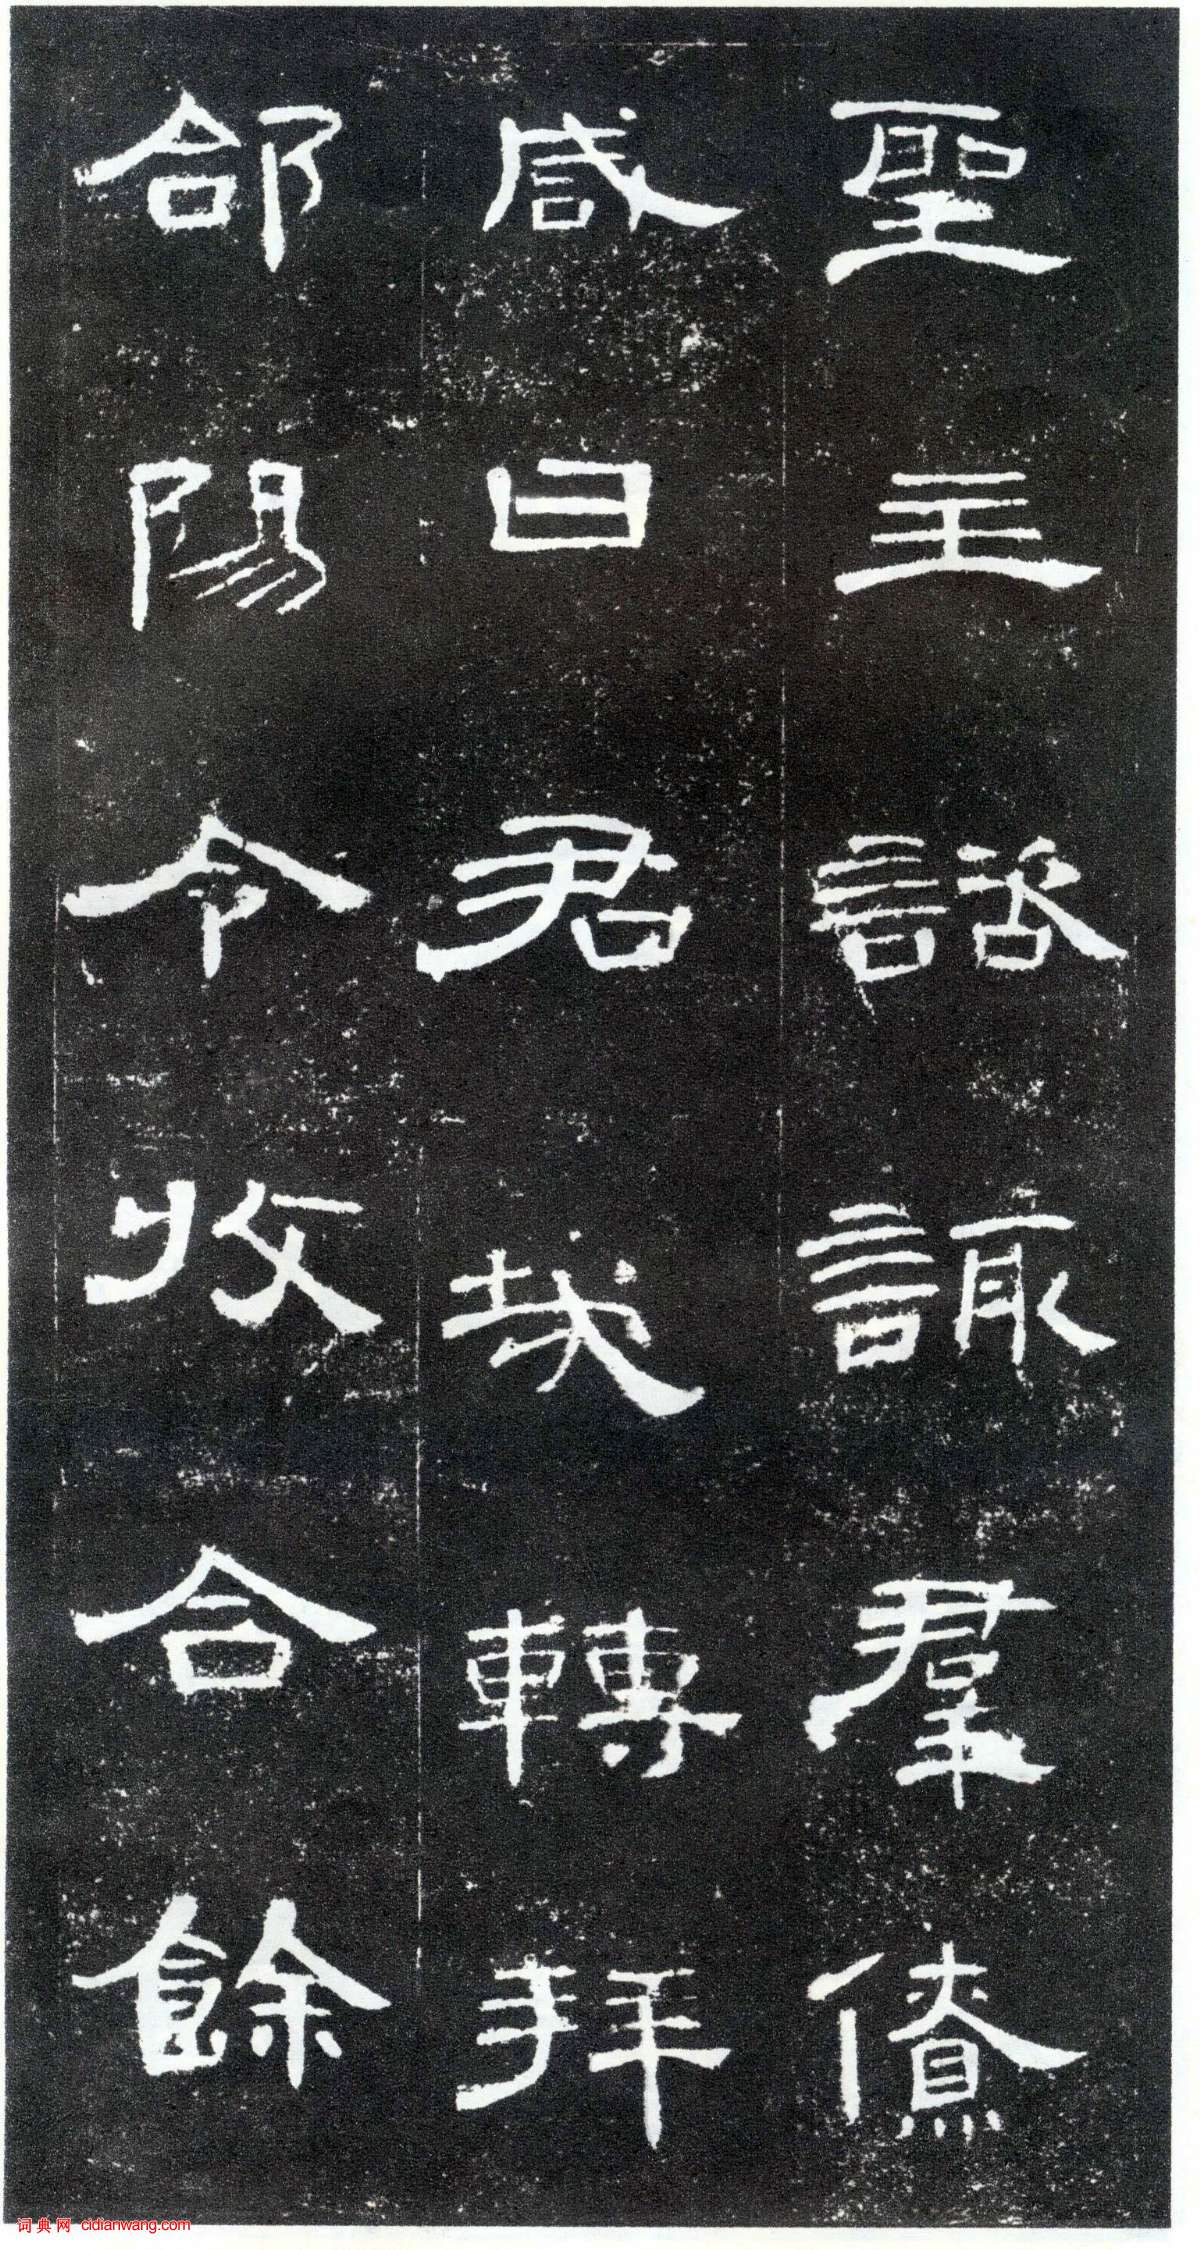 聖主諮諏羣僚
咸曰君哉轉拜
郃陽令收合餘
词典网 cidianwang.com